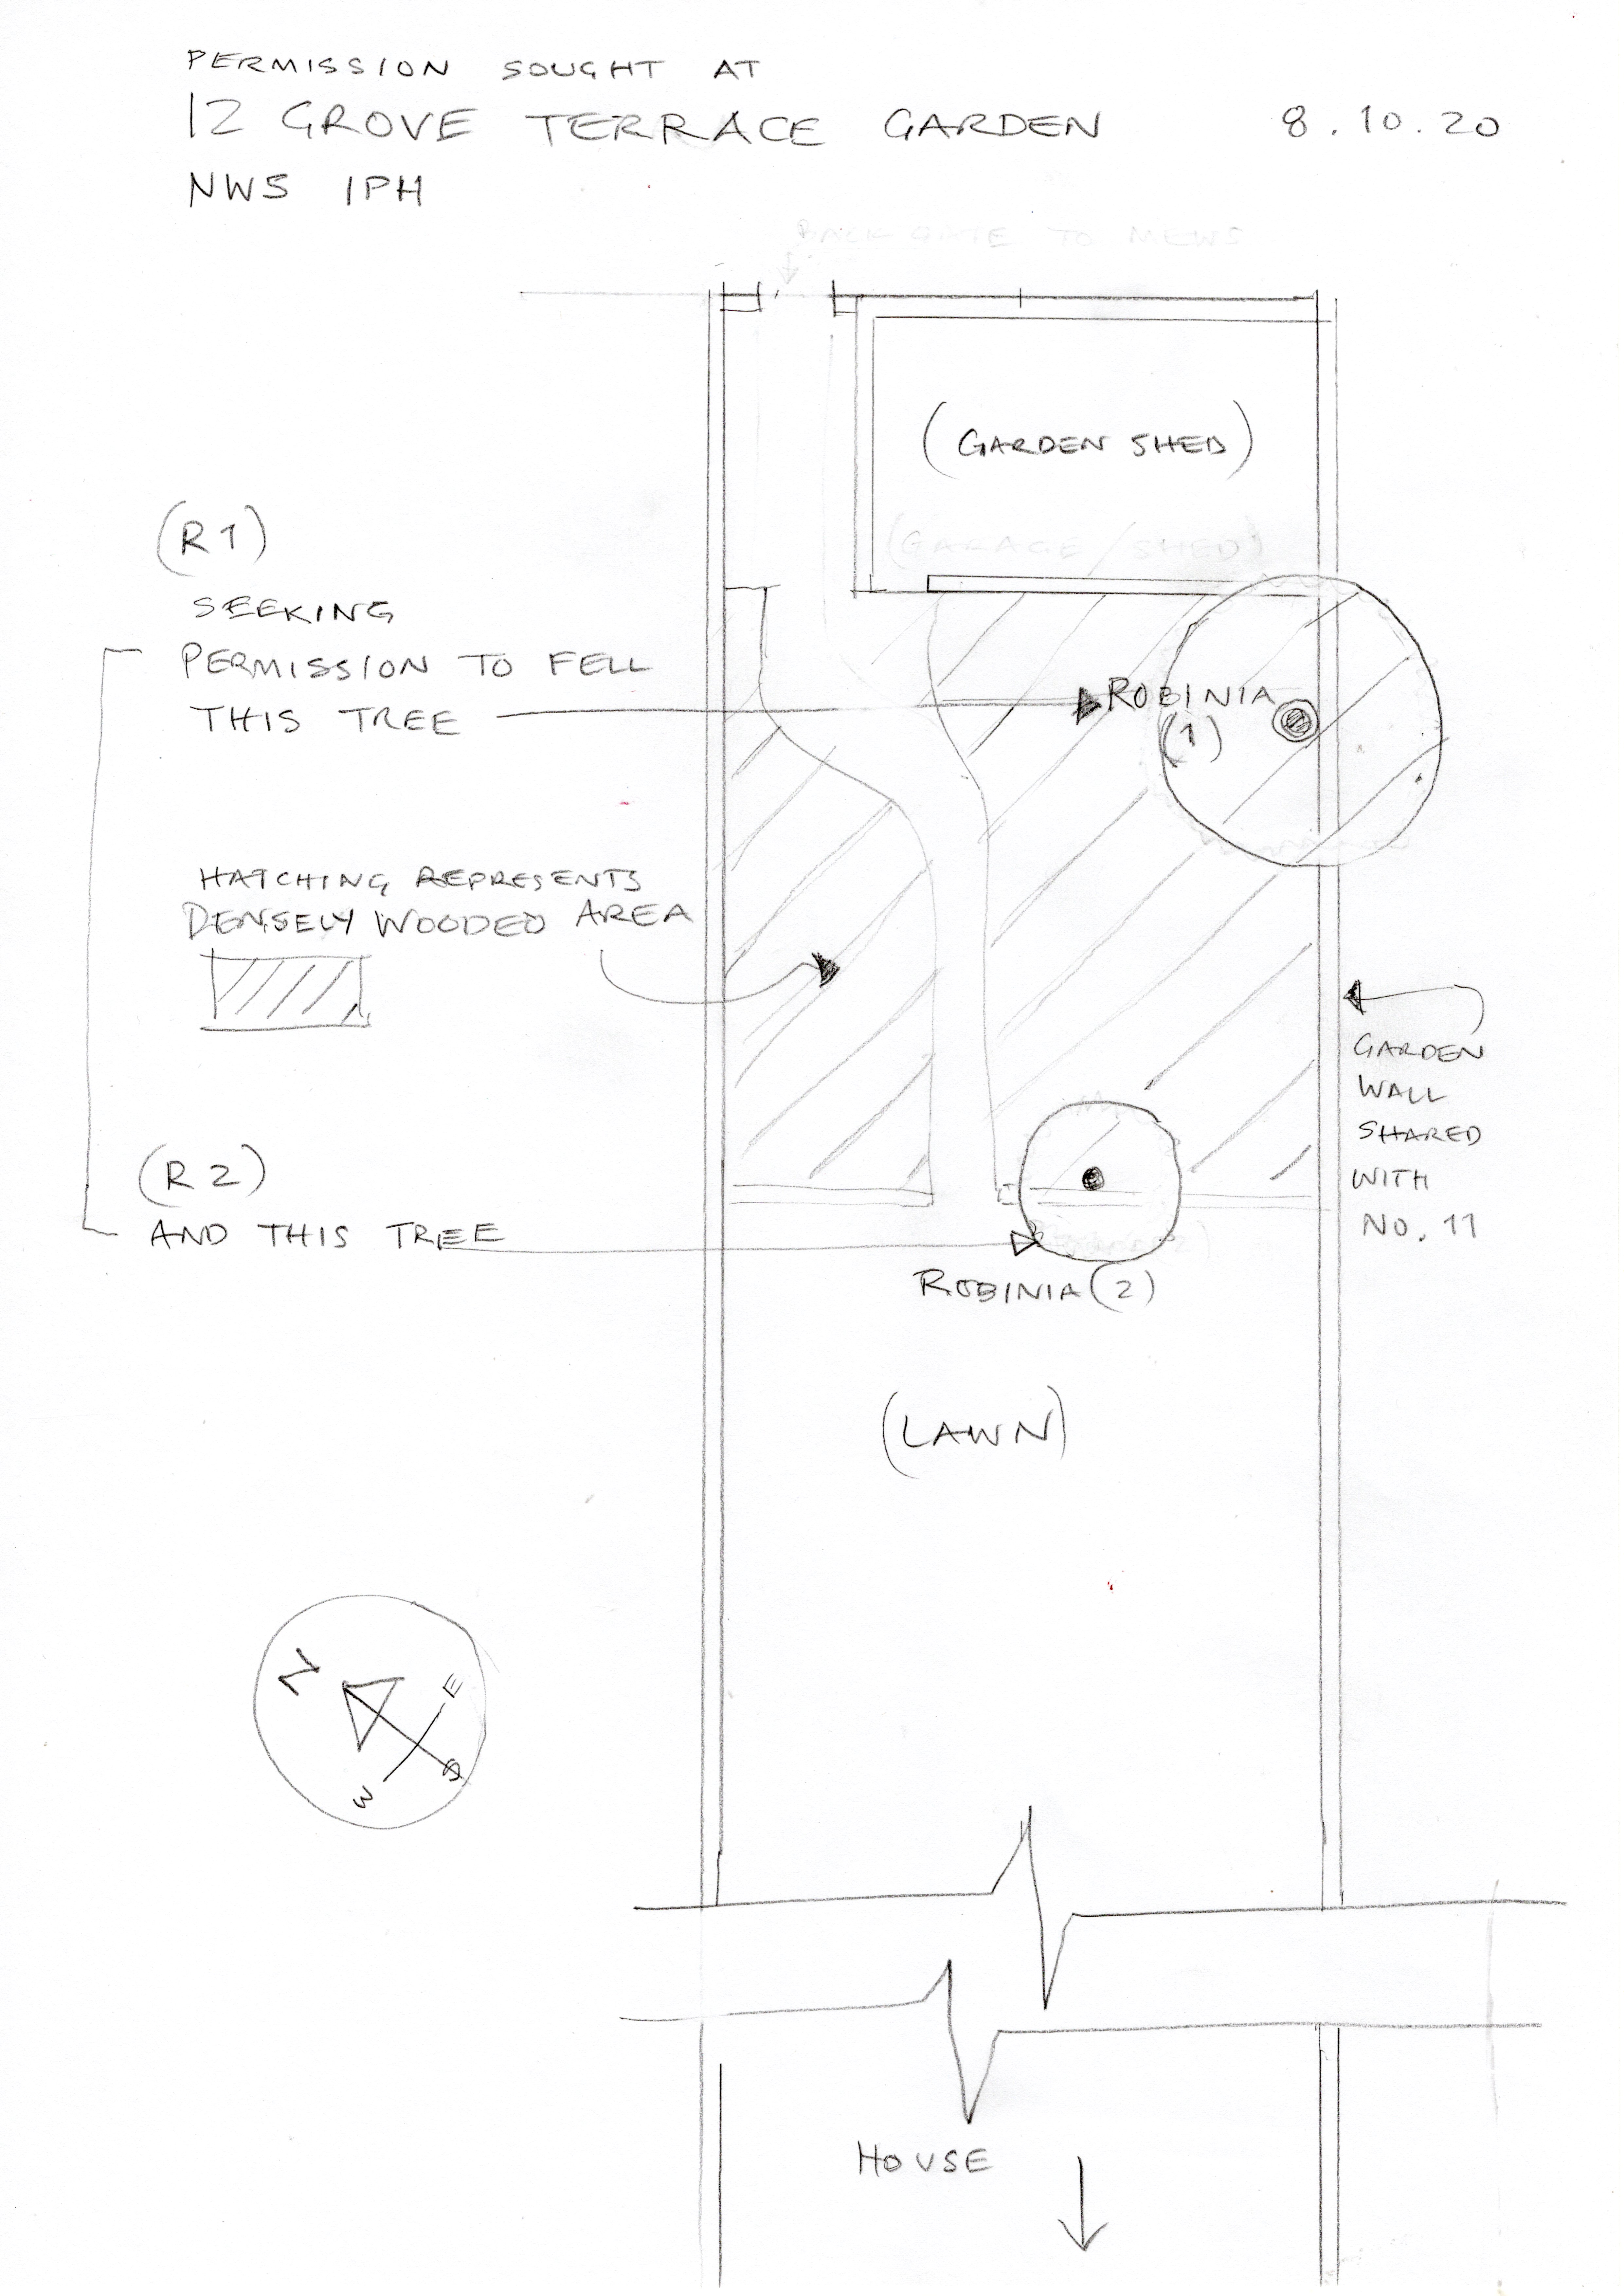 PERMISSION SOUGHT AT
12 GROVE TERRACE GARDEN 8.10.20
NW5 1PH
BACK GATE TO MEWS
(GARDEN SHED)
(GARAGE/SHED)
(R1)
SEEKING
PERMISSION TO FELL
THIS TREE
ROBINIA
(1)
HATCHING REPRESENTS
DENSELY WOODED AREA
GARDEN
WALL
SHARED
WITH
NO. 11
(R2)
AND THIS TREE
ROBINIA (2)
(LAWN)
N
E
W
S
HOUSE